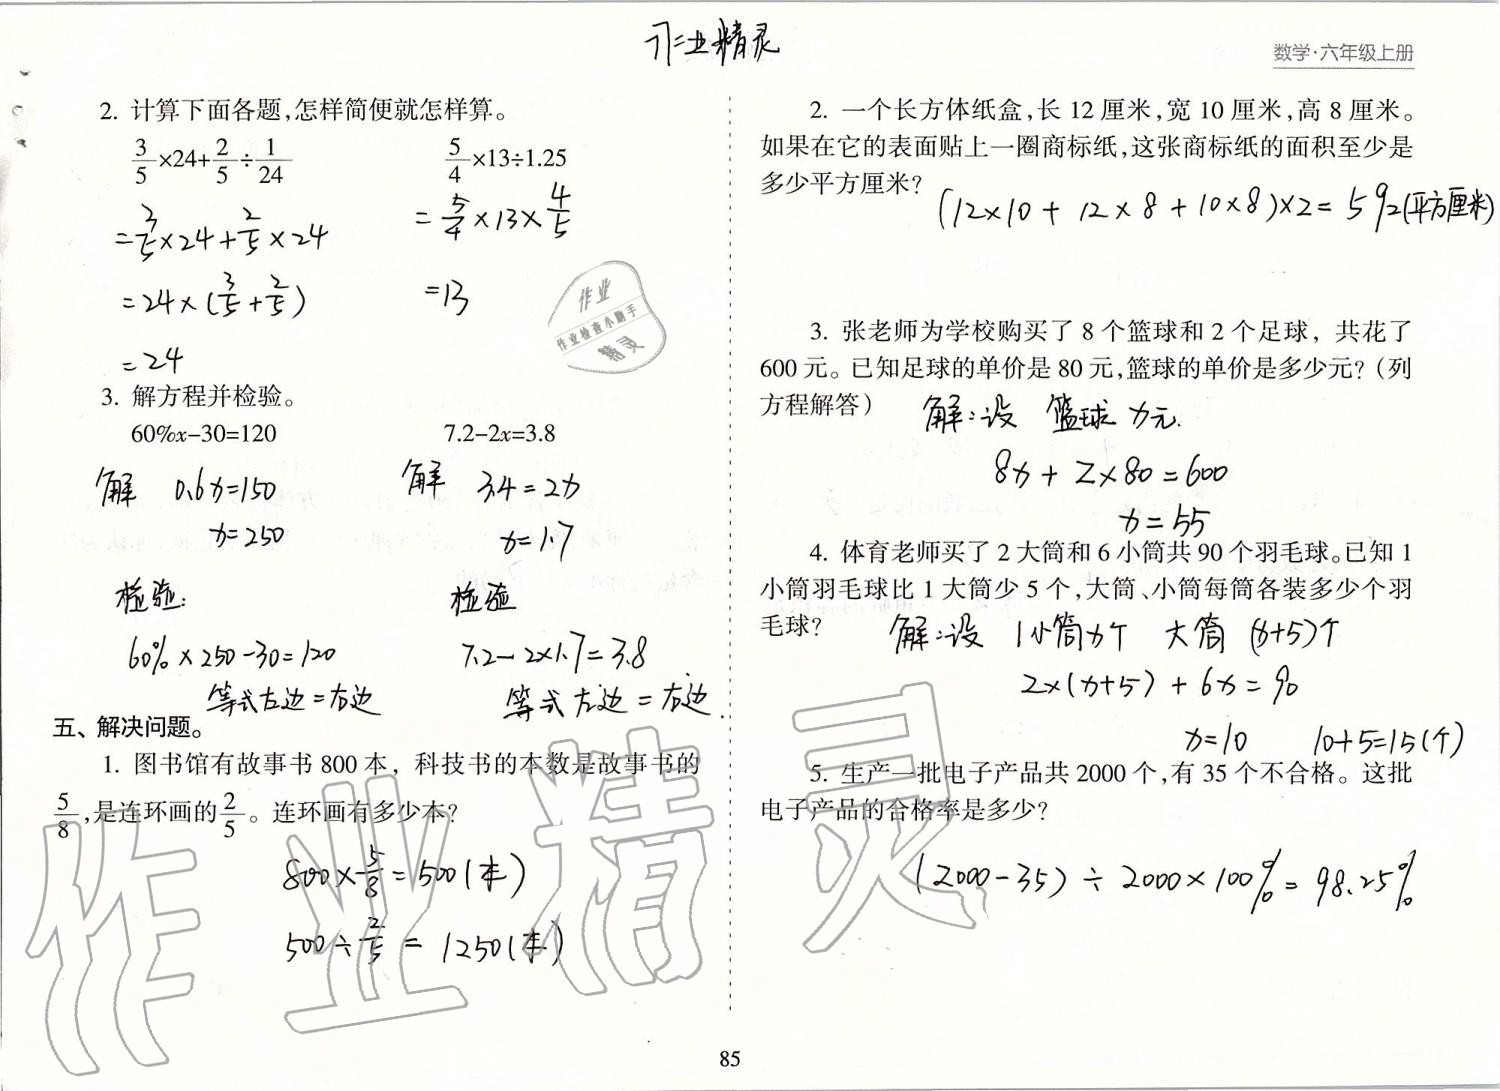 作业精灵
数学·六年级上册
2. 计算下面各题,怎样简便就怎样算。
3/5×24+2/5÷1/24
5/4×13÷1.25
=3/5×24+2/5×24
=5/4×13×4/5
=24×(3/5+2/5)
=13
=24
作业
作业检查小助手
精灵
3. 解方程并检验。
60%x-30=120
7.2-2x=3.8
解 0.6x=150
解 3.4=2x
x=250
x=1.7
检验:
检验
60%×250-30=120
7.2-2×1.7=3.8
等式左边=右边
等式左边=右边.
五、解决问题。
1. 图书馆有故事书 800 本, 科技书的本数是故事书的
5/8,是连环画的2/5。连环画有多少本?
800×5/8=500(本)
500÷2/5=1250(本)
2. 一个长方体纸盒,长 12 厘米,宽 10 厘米,高 8 厘米。
如果在它的表面贴上一圈商标纸,这张商标纸的面积至少是
多少平方厘米?
(12×10+12×8+10×8)×2=592(平方厘米)
3. 张老师为学校购买了 8 个篮球和 2 个足球, 共花了
600 元。已知足球的单价是 80 元,篮球的单价是多少元?(列
方程解答)
解:设 篮球x元.
8x+2×80=600
x=55
4. 体育老师买了 2 大筒和 6 小筒共 90 个羽毛球。已知 1
小筒羽毛球比 1 大筒少 5 个,大筒、小筒每筒各装多少个羽
毛球?
解:设 1小筒x个 大筒(x+5)个
2×(x+5)+6x=90
x=10 10+5=15(个)
5. 生产一批电子产品共 2000 个,有 35 个不合格。这批
电子产品的合格率是多少?
(2000-35)÷2000×100%=98.25%
作业精灵
85